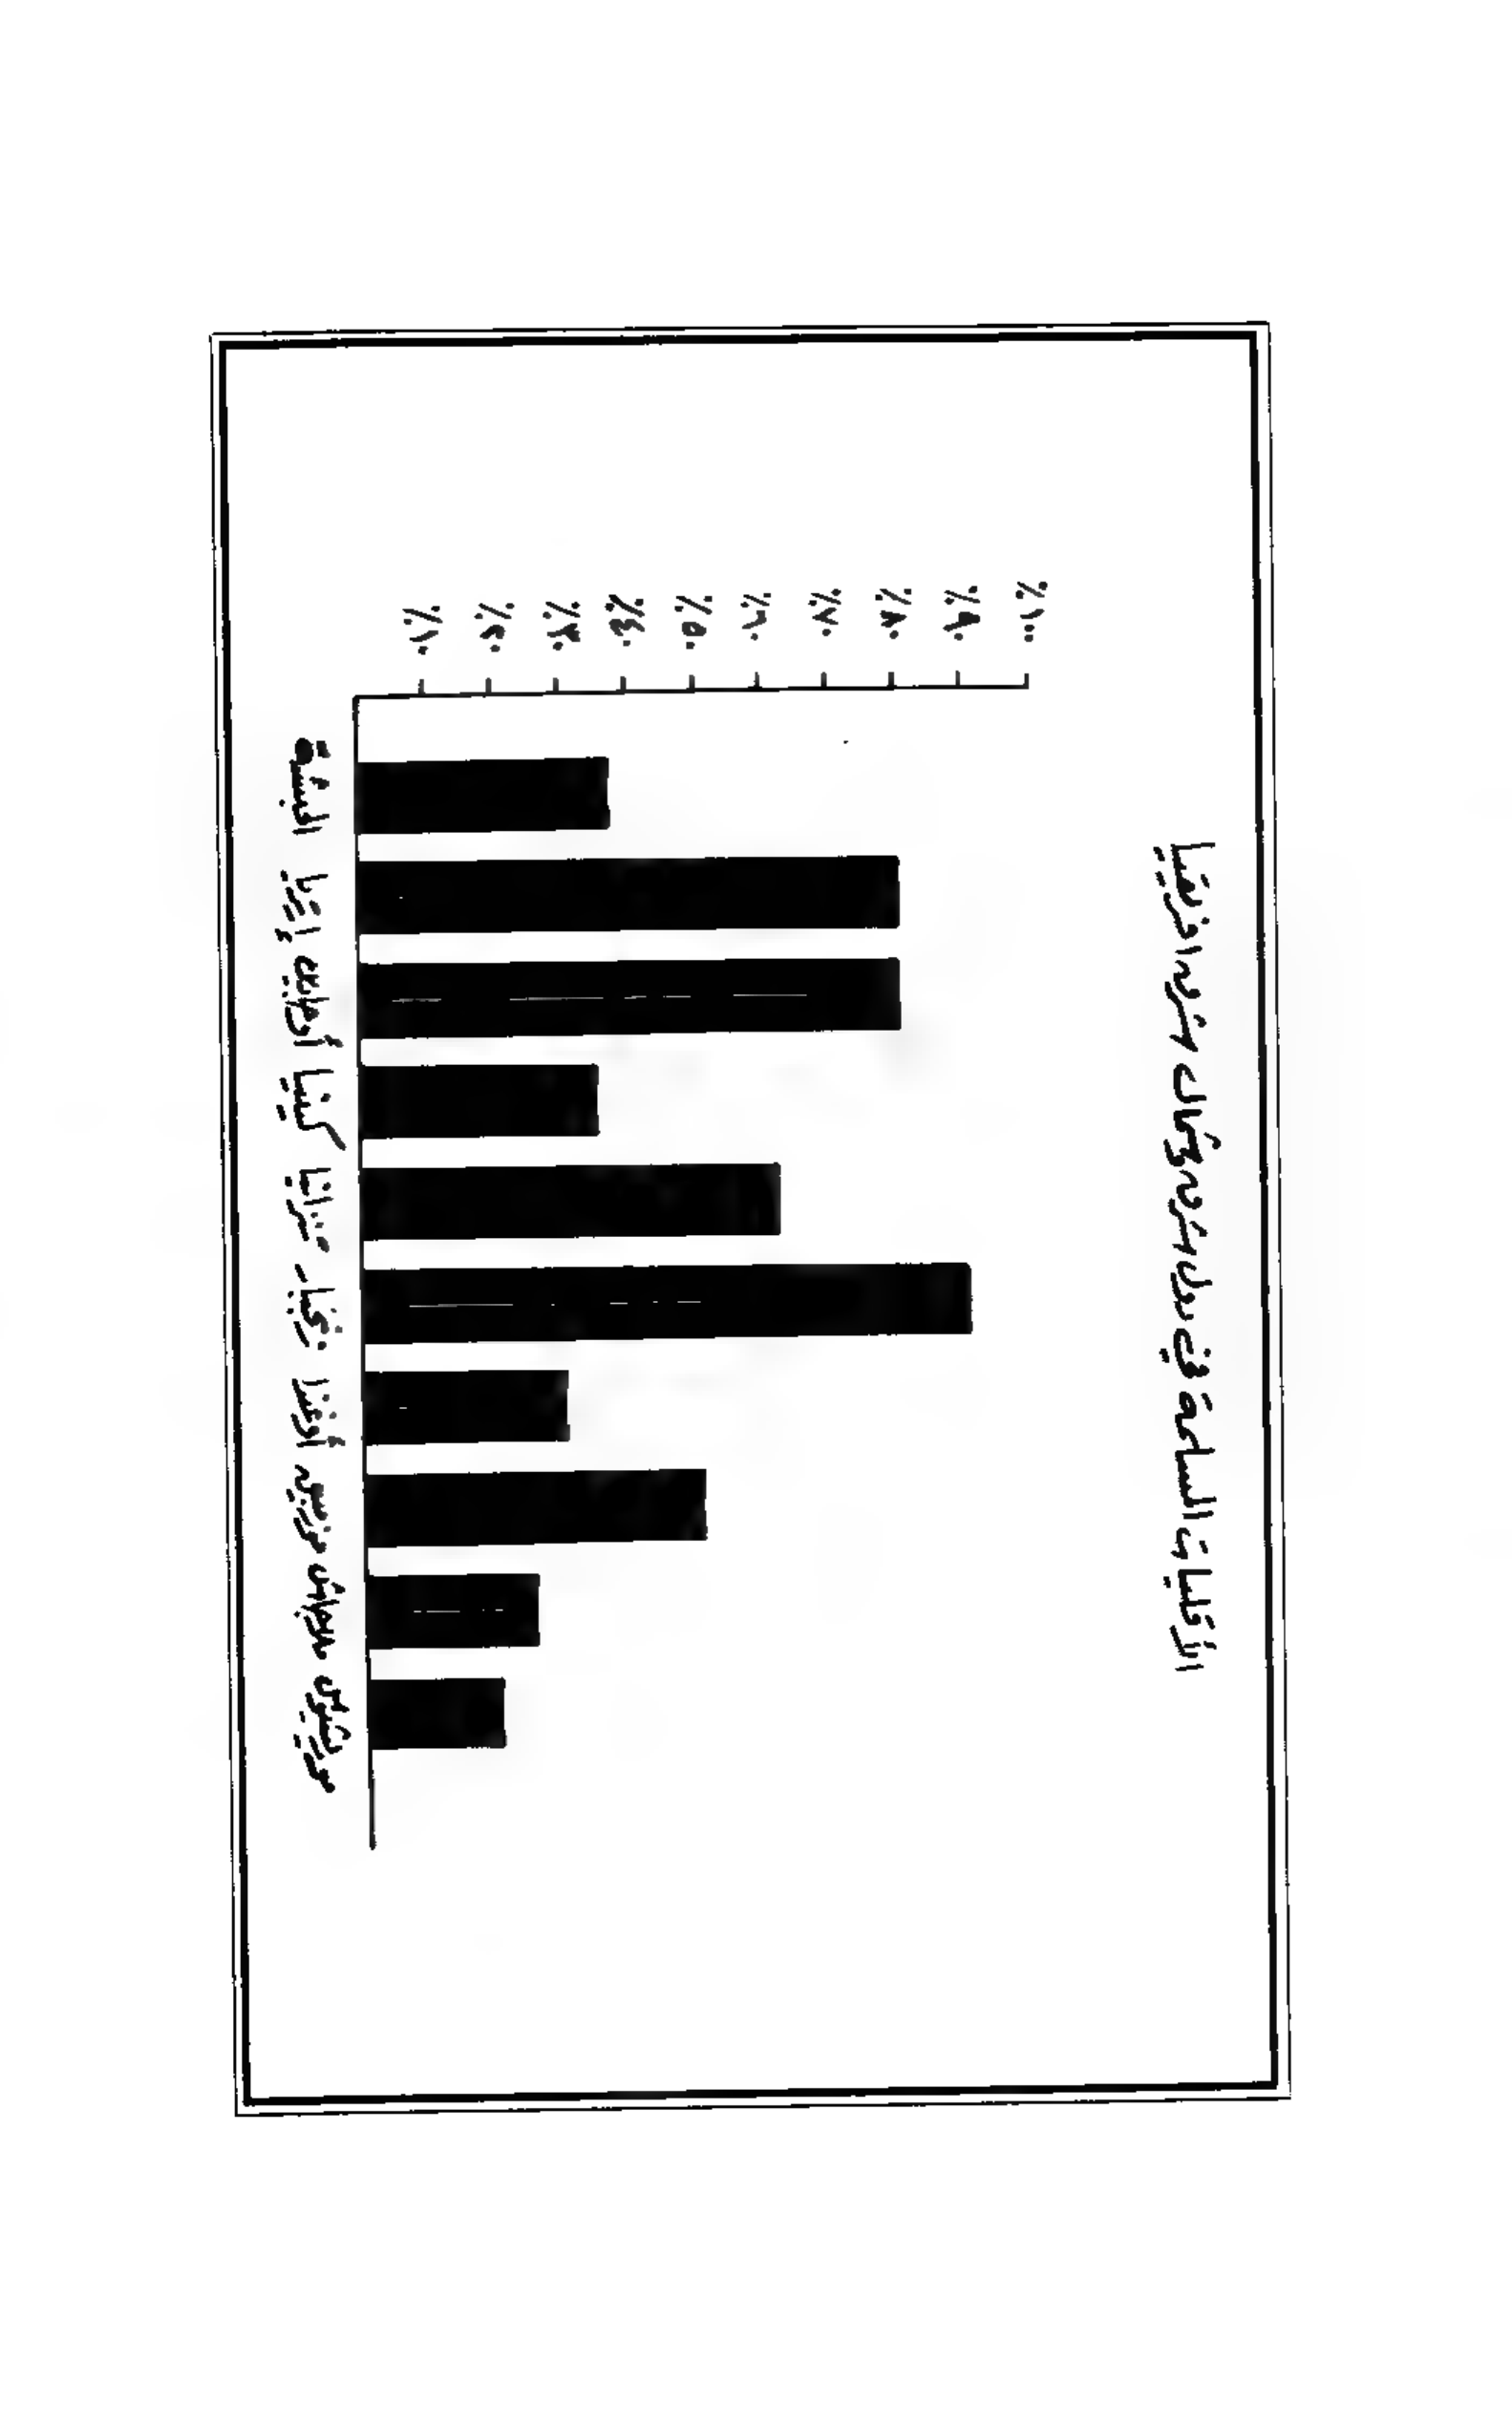 الاقليات المسلمة في دول شرق وشمال شرق افريقيا
٪١٠٠
٪٩٠
٪٨٠
٪٧٠
٪٦٠
٪٥٠
٪٤٠
٪٣٠
٪٢٠
٪١٠
الحبشة
إرتريا
أوجادين
كينيا
تنزانيا
زنجبار
أوغندا
موزمبيق
موريشيوس